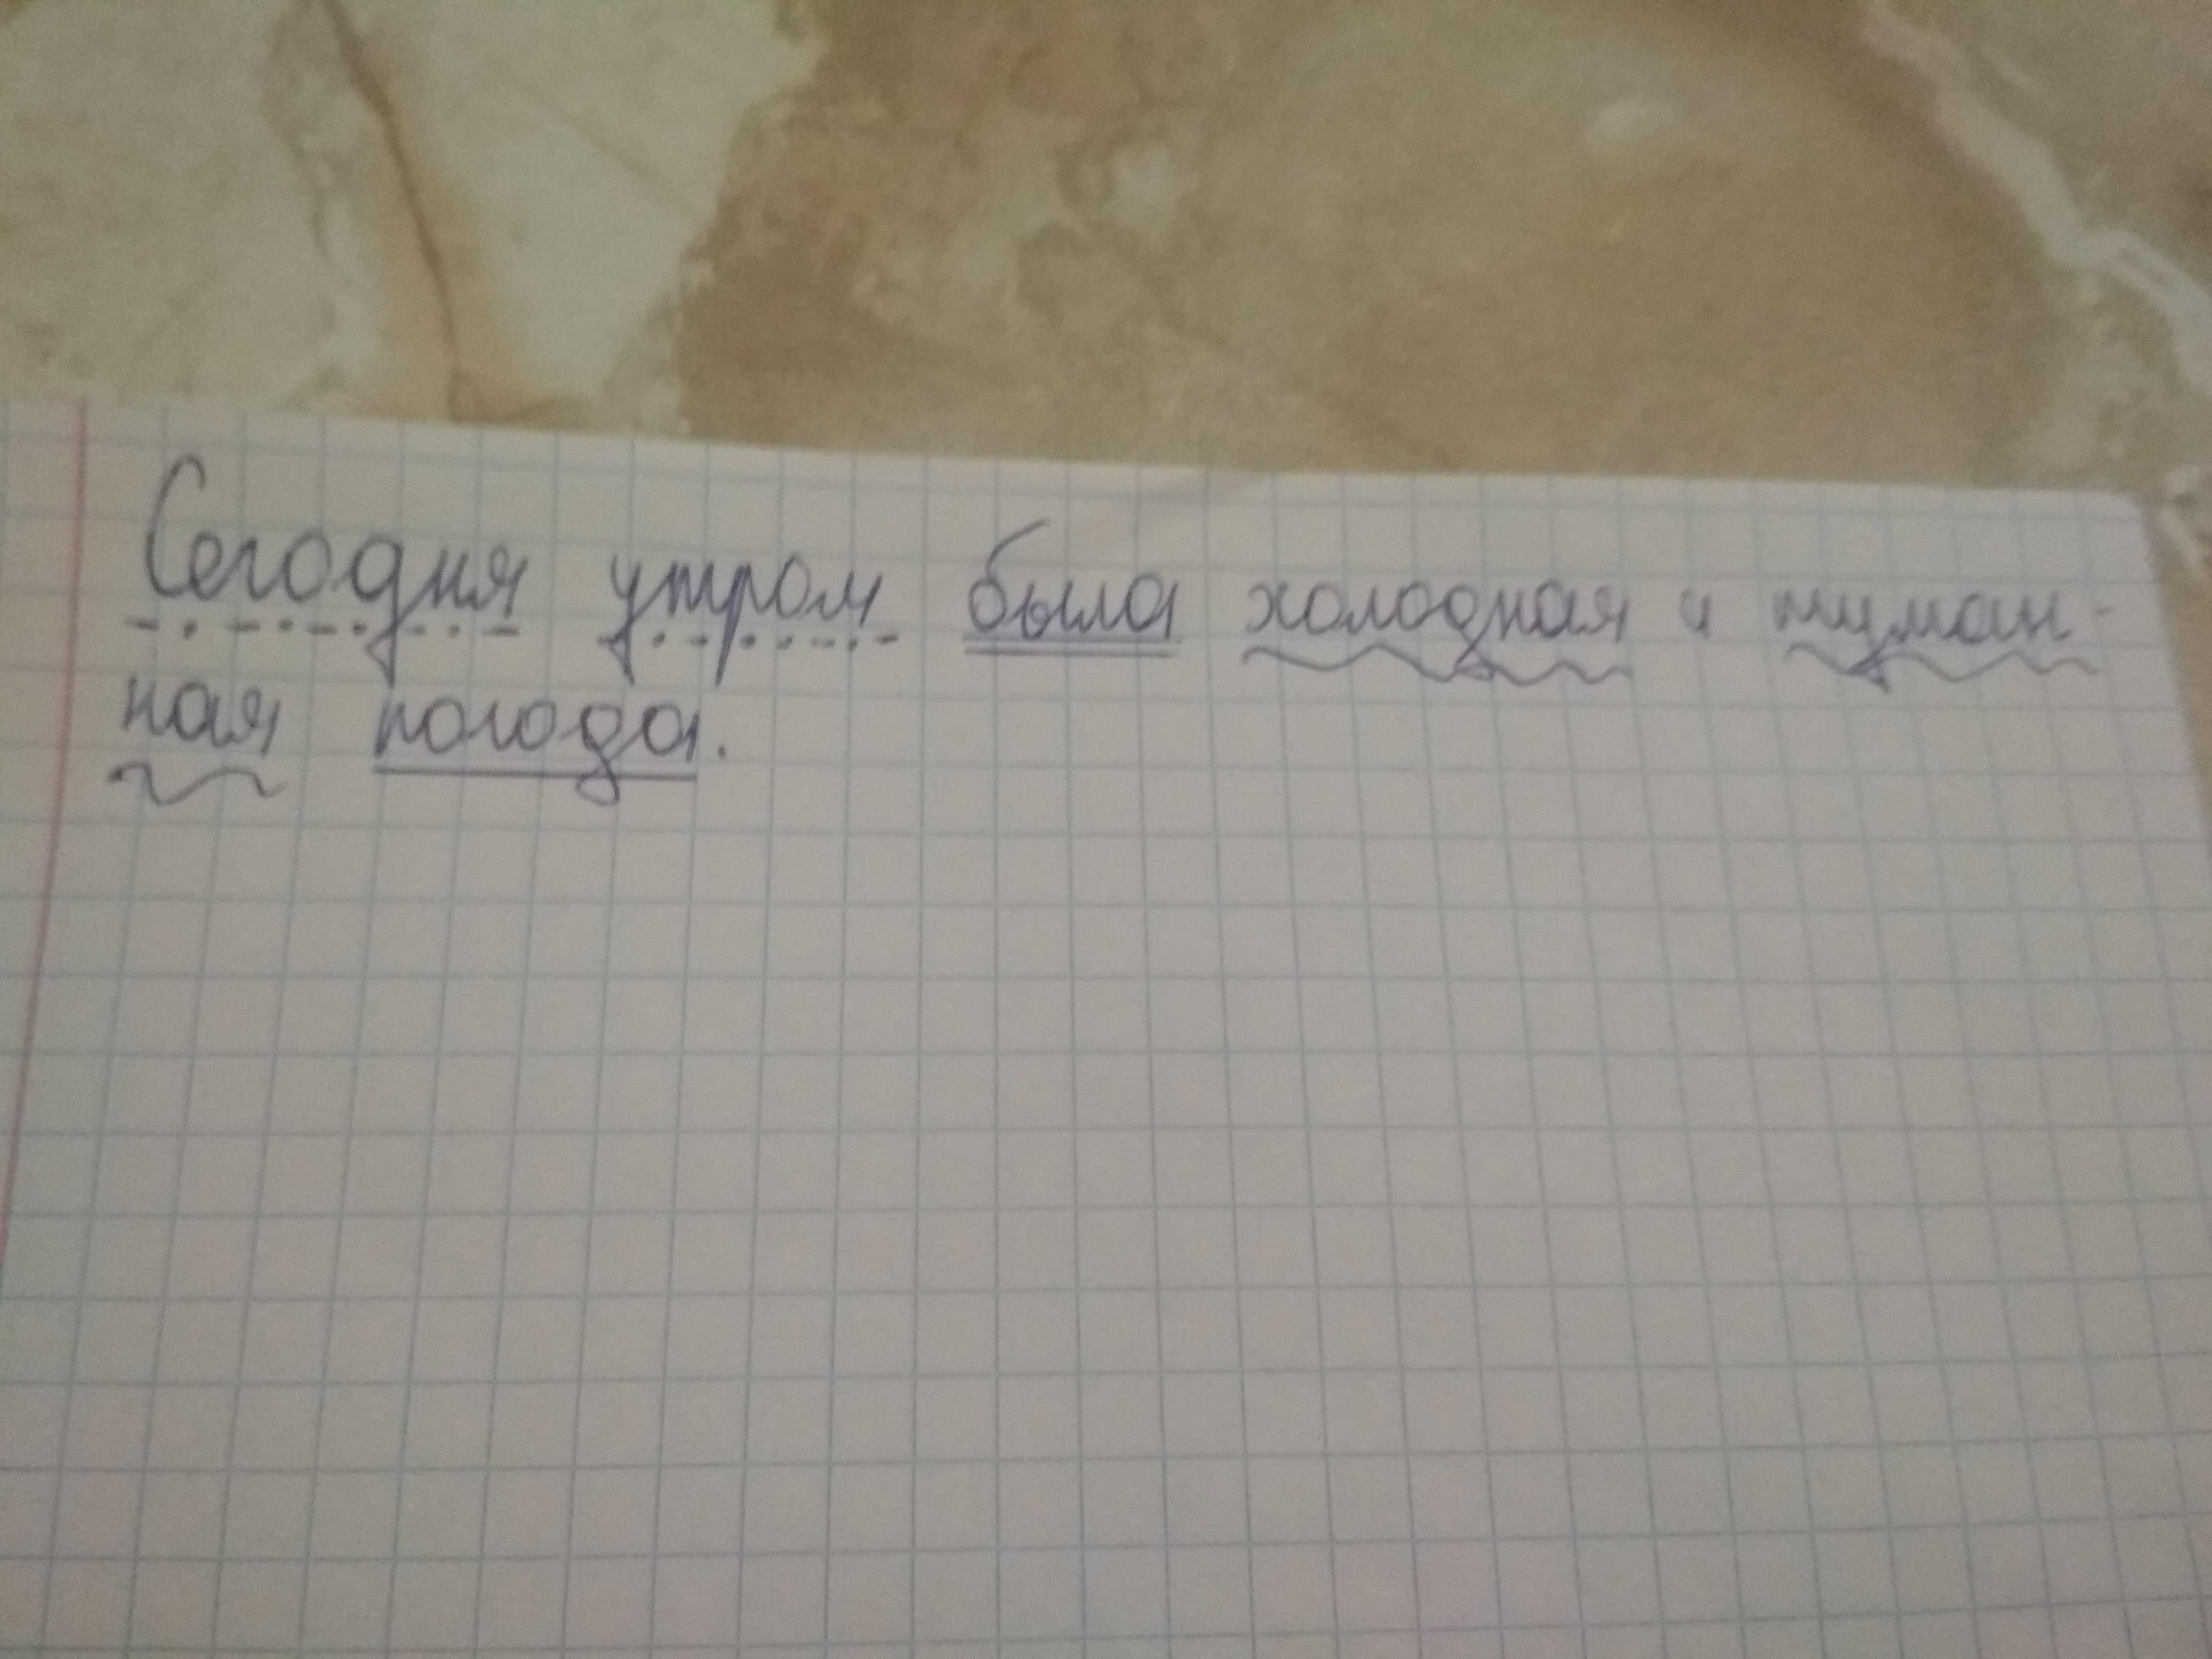 Сегодня утром была холодная и туман-
ная погода.